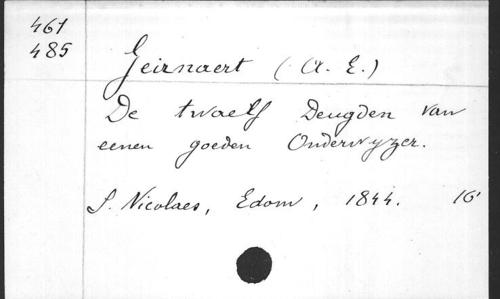 461
485
Geirnaert (A. E.)
De twaelf Deugden van
eenen goeden Onderwyzer.
S. Nicolaes, Edom, 1844. 16°